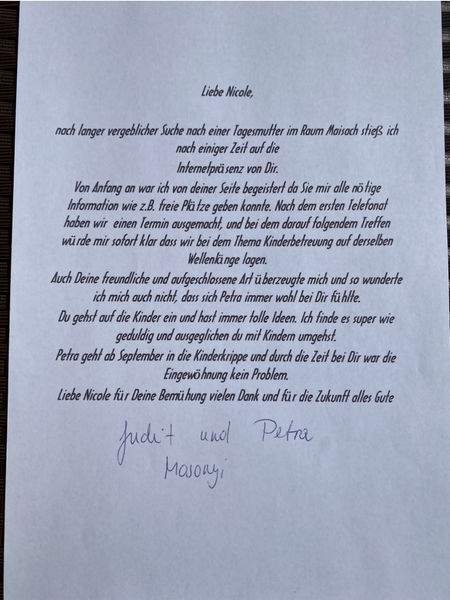 Liebe Nicole,
nach langer vergeblicher Suche nach einer Tagesmutter im Raum Maisach stieß ich
nach einiger Zeit auf die
Internetpräsenz von Dir.
Von Anfang an war ich von deiner Seite begeistert da Sie mir alle nötige
Information wie z.B. freie Plätze geben konnte. Nach dem ersten Telefonat
haben wir einen Termin ausgemacht, und bei dem darauf folgendem Treffen
würde mir sofort klar dass wir bei dem Thema Kinderbetreuung auf derselben
Wellenlänge lagen.
Auch Deine freundliche und aufgeschlossene Art überzeugte mich und so wunderte
ich mich auch nicht, dass sich Petra immer wohl bei Dir fühlte.
Du gehst auf die Kinder ein und hast immer tolle Ideen. Ich finde es super wie
geduldig und ausgeglichen du mit Kindern umgehst.
Petra geht ab September in die Kinderkrippe und durch die Zeit bei Dir war die
Eingewöhnung kein Problem.
Liebe Nicole für Deine Bemühung vielen Dank und für die Zukunft alles Gute
Judit und Petra
Mosonyi